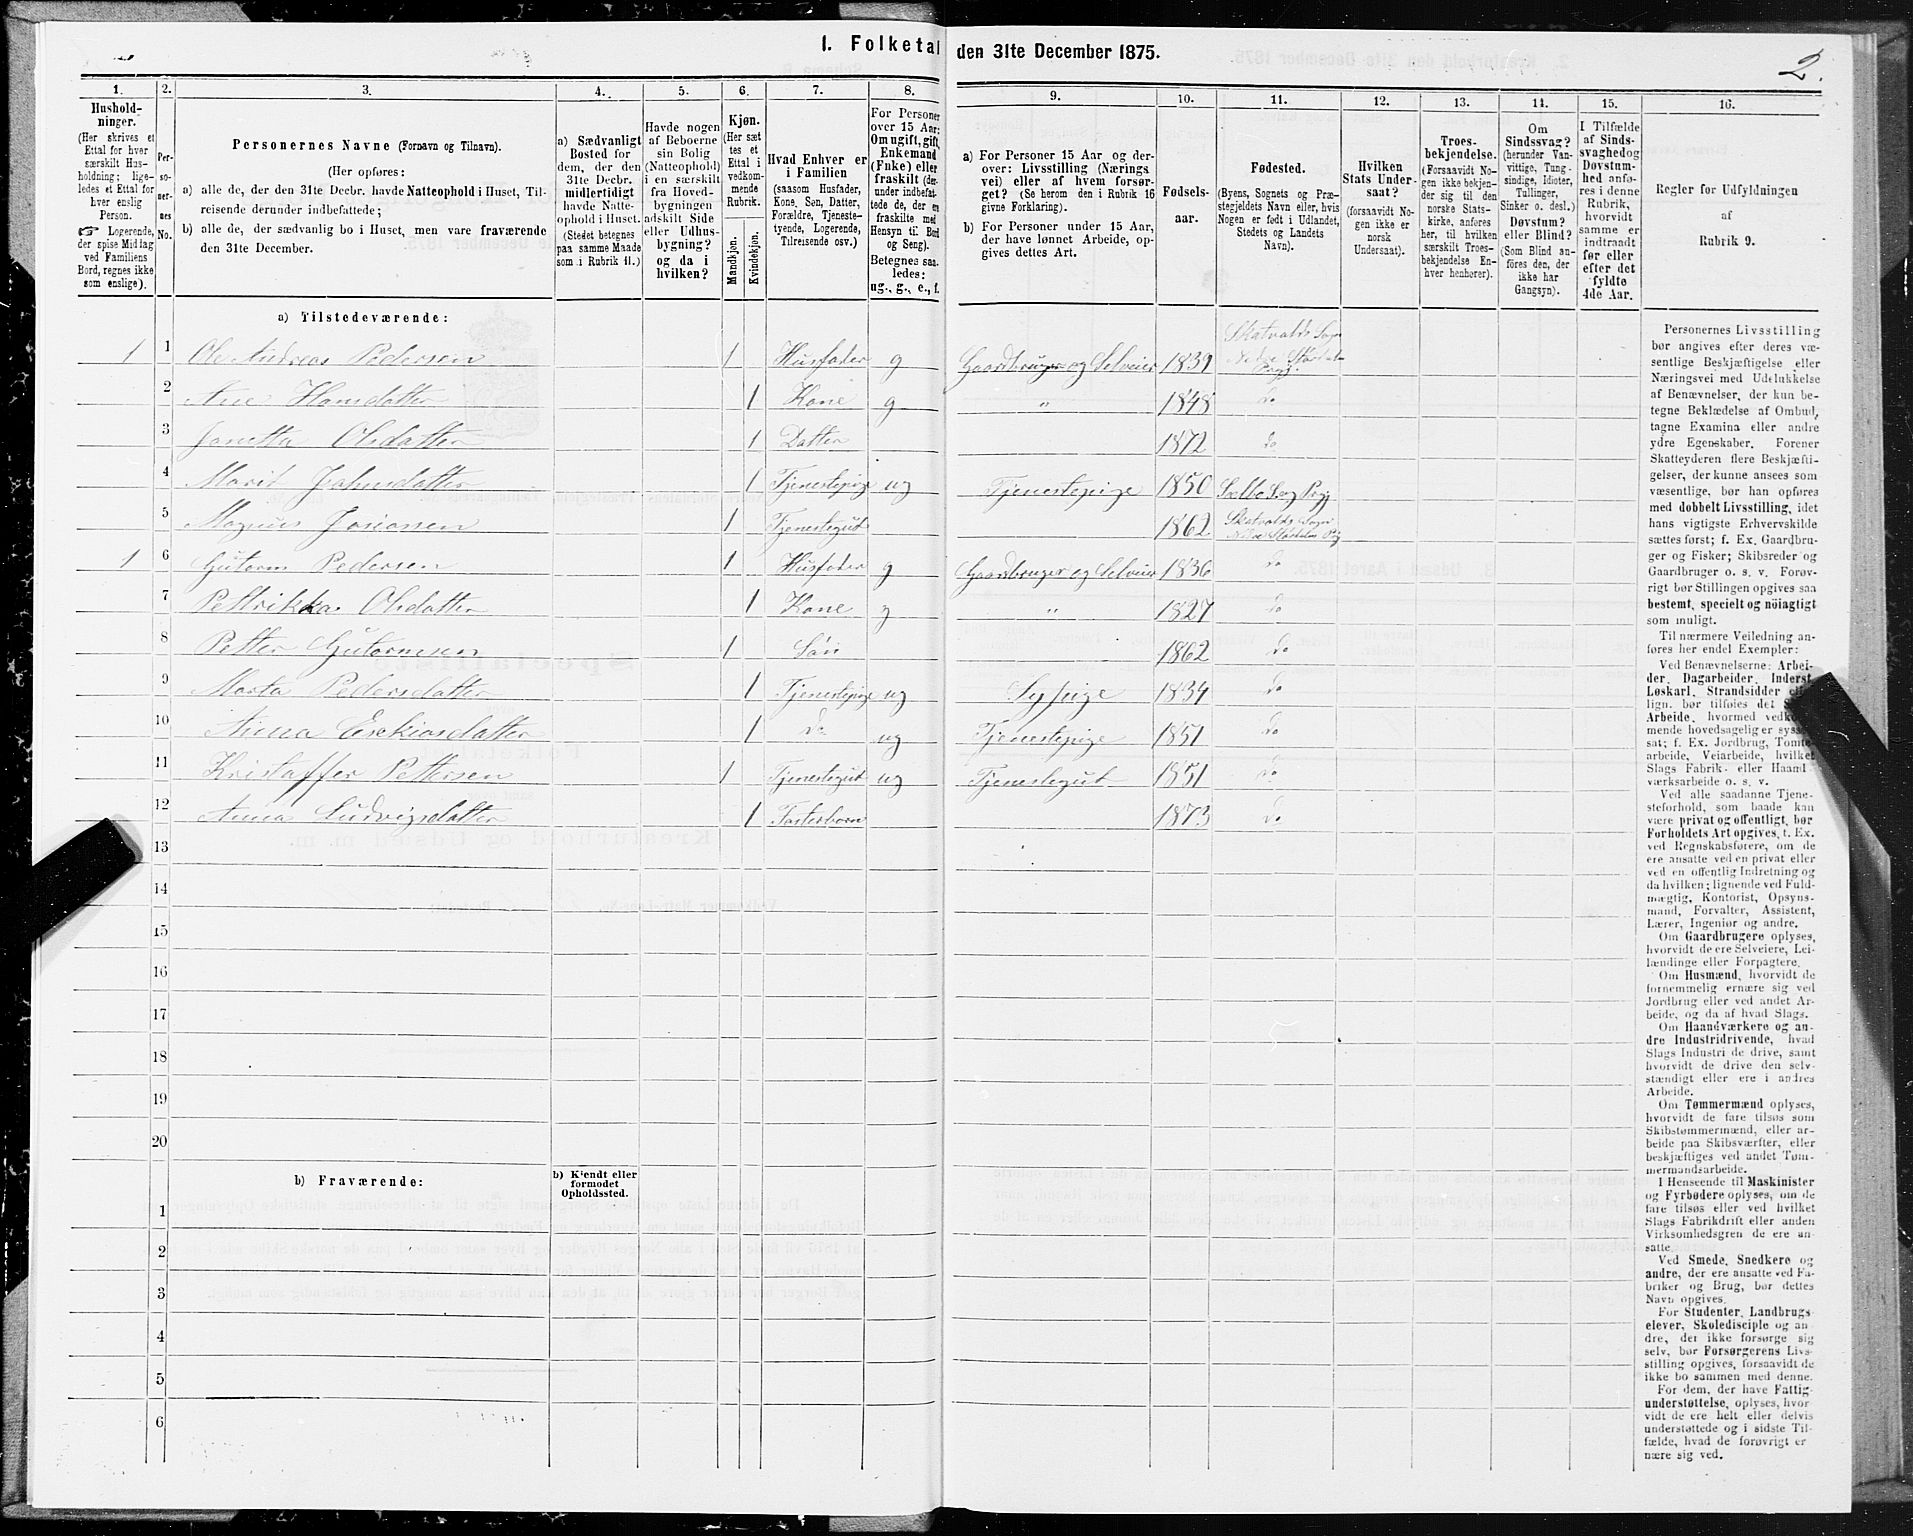 1. Folketal den 31te December 1875.
2.
1. 2. 3. 4. 5. 6. 7. 8. 9. 10. 11. 12. 13. 14. 15. 16.
Hushold-
ninger.
(Her skrives et
Ettal for hver
særskilt Hus-
holdning; lige-
ledes et Ettal for
hver enslig
Person.
☞ Logerende,
der spise Middag
ved Familiens
Bord, regnes ikke
som enslige).
Per-
so-
ner-
nes
No.
Personernes Navne (Fornavn og Tilnavn).
(Her opføres:
a) alle de, der den 31te Decbr. havde Natteophold i Huset, Til-
reisende derunder indbefattede;
b) alle de, der sædvanlig bo i Huset, men vare fraværende
den 31te December.
a) Sædvanligt
Bosted for
dem, der den
31te Decbr.
midlertidigt
havde Natte-
ophold i Huset.
(Stedet betegnes
paa samme Maade
som i Rubrik 11.)
Havde nogen
af Beboerne
sin Bolig
(Natteophold)
i en særskilt
fra Hoved-
bygningen
adskilt Side
eller Udhus-
bygning?
og da i
hvilken?
Kjøn.
(Her sæt-
tes et
Ettal i
vedkom-
mende
Rubrik.
Mandkjøn.
Kvindekjøn.
Hvad Enhver er
i Familien
(saasom Husfader,
Kone, Søn, Datter,
Forældre, Tjeneste-
tyende, Logerende,
Tilreisende osv.)
For Personer
over 15 Aar:
Om ugift, gift,
Enkemand
(Enke) eller
fraskilt (der-
under indbefat-
tede de, der ere
fraskilte med
Hensyn til Bord
og Seng).
Betegnes saa-
ledes:
ug., g., e., f.
a) For Personer 15 Aar og der-
over: Livsstilling (Nærings
vei) eller af hvem forsør-
get? (Se herom den i Rubrik 16
givne Forklaring).
b) For Personer under 15 Aar,
der have lønnet Arbeide, op-
gives dettes Art.
Fødsels-
aar.
Fødested.
(Byens, Sognets og Præ-
stegjeldets Navn eller, hvis
Nogen er født i Udlandet,
Stedets og Landets
Navn).
Hvilken
Stats Under-
saat?
(forsaavidt No-
gen ikke er
norsk
Undersaat).
Troes-
bekjendelse.
(Forsaavidt No-
gen ikke bekjen-
der sig til den
norske Stats-
kirke, anføres
her, til hvilken
særskilt Troes-
bekjendelse En-
hver henhører).
Om
Sindssvag?
(herunder Van-
vittige, Tung-
sindige, Idioter,
Tullinger,
Sinker o. desl.)
Døvstum?
eller Blind?
(Som Blind an-
føres den, der
ikke har
Gangsyn).
I Tilfælde
af Sinds-
svaghed og
Døvstum-
hed anfø-
res i denne
Rubrik,
hvorvidt
samme er
indtraadt
før eller
efter det
fyldte
4de Aar.
Regler for Udfyldningen
af
Rubrik 9.
a) Tilstedeværende:
1 1 Ole Andreas Pedersen 1 Husfader g Gaardbruger og Selveier 1839 Skatvalds Sogn Nedre Størdalen Prgj.
2 Ane Hansdatter 1 Kone g " 1848 do
3 Janetta Olsdatter 1 Datter 1872 do
4 Marit Johnsdatter 1 Tjenestepige ug Tjenestepige 1850 Selbo S. og Prgj
5 Magnus Josiassen 1 Tjenestegut 1862 Skatvalds Sogn Nedre Størdalen Prgj
1 6 Gutorm Pedersen 1 Husfader g Gaardbruger og Selveier 1836 do
7 Pettrikka Olsdatter 1 Kone g " 1827 do
8 Petter Gutormsen 1 Søn 1862 do
9 Marta Pedersdatter 1 Tjenestepige ug Sypige 1834 do
10 Anna Esekiasdatter 1 do ug Tjenestepige 1851 do
11 Kristaffer Pettersen 1 Tjenestegut ug Tjenestegut 1851 do
12 Anna Ludvigsdatter 1 Fosterbarn 1873 do
13
14
15
16
17
18
19
20
b) Fraværende:
b) Kjendt eller
formodet
Opholdssted.
1
2
3
4
5
6
Personernes Livsstilling
bør angives efter deres væ-
sentlige Beskjæftigelse eller
Næringsvei med Udelukkelse
af Benævnelser, der kun be-
tegne Beklædelse af Ombud,
tagne Examina eller andre
ydre Egenskaber. Forener
Skatteyderen flere Beskjæfti-
gelser, der kunne ansees som
væsentlige, bør han opføres
med dobbelt Livsstilling, idet
hans vigtigste Erhvervskilde
sættes først; f. Ex. Gaardbru-
ger og Fisker; Skibsreder og
Gaardbruger o. s. v. Forøv-
rigt bør Stillingen opgives saa
bestemt, specielt og nöiagtigt
som muligt.
Til nærmere Veiledning an-
føres her endel Exempler:
Ved Benævnelserne: Arbei-
der, Dagarbeider, Inderst,
Løskarl, Strandsidder
lign. bør tilføies det
Arbeide, hvormed
mende hovedsagelig er
sat; f. Ex. Jordbrug, Tomte-
arbeide, Veiarbeide, hvilket
Slags Fabrik- eller Haand
værksarbeide o. s. v.
Ved alle saadanne Tjene-
steforhold, som baade kan
være privat og offentligt, bør
Forholdets Art opgives, t. Ex.
ved Regnskabsførere, om de
ere ansatte ved en privat eller
ved en offentlig Indretning og
da hvilken; lignende ved Fuld-
mægtig, Kontorist, Opsyns-
mand, Forvalter, Assistent,
Lærer, Ingeniør og andre.
Om Gaardbrugere oplyses,
hvorvidt de ere Selveiere, Lei-
lændinge eller Forpagtere.
Om Husmænd, hvorvidt de
fornemmelig ernære sig ved
Jordbrug eller ved andet Ar-
beide, og da af hvad Slags.
Om Haandværkere og an-
dre Industridrivende, hvad
Slags Industri de drive, samt
hvorvidt de drive den selv-
stændigt eller ere i andres
Arbeide.
Om Tømmermænd oplyses,
hvorvidt de fare tilsøs som
Skibstømmermænd, eller ar-
beide paa Skibsværfter, eller
beskjæftiges ved andet Tøm-
mermandsarbeide.
I Henseende til Maskinister
og Fyrbødere oplyses, om de
fare tilsøs eller ved hvilket
Slags Fabrikdrift eller anden
Virksomhedsgren de ere an-
satte.
Ved Smede, Snedkere og
andre, der ere ansatte ved Fa-
briker og Brug, bør dettes
Navn opgives.
For Studenter, Landbrugs
elever, Skoledisciple og an
dre, der ikke forsørge sig
selv, bør Forsørgerens Livs-
stilling opgives, forsaavidt de
ikke bo sammen med denne.
For dem, der have Fattig
understøttelse, oplyses, hvor-
vidt de ere helt eller delvis
understøttede og i sidste Til-
fælde, hvad de forøvrigt er
nære sig ved.